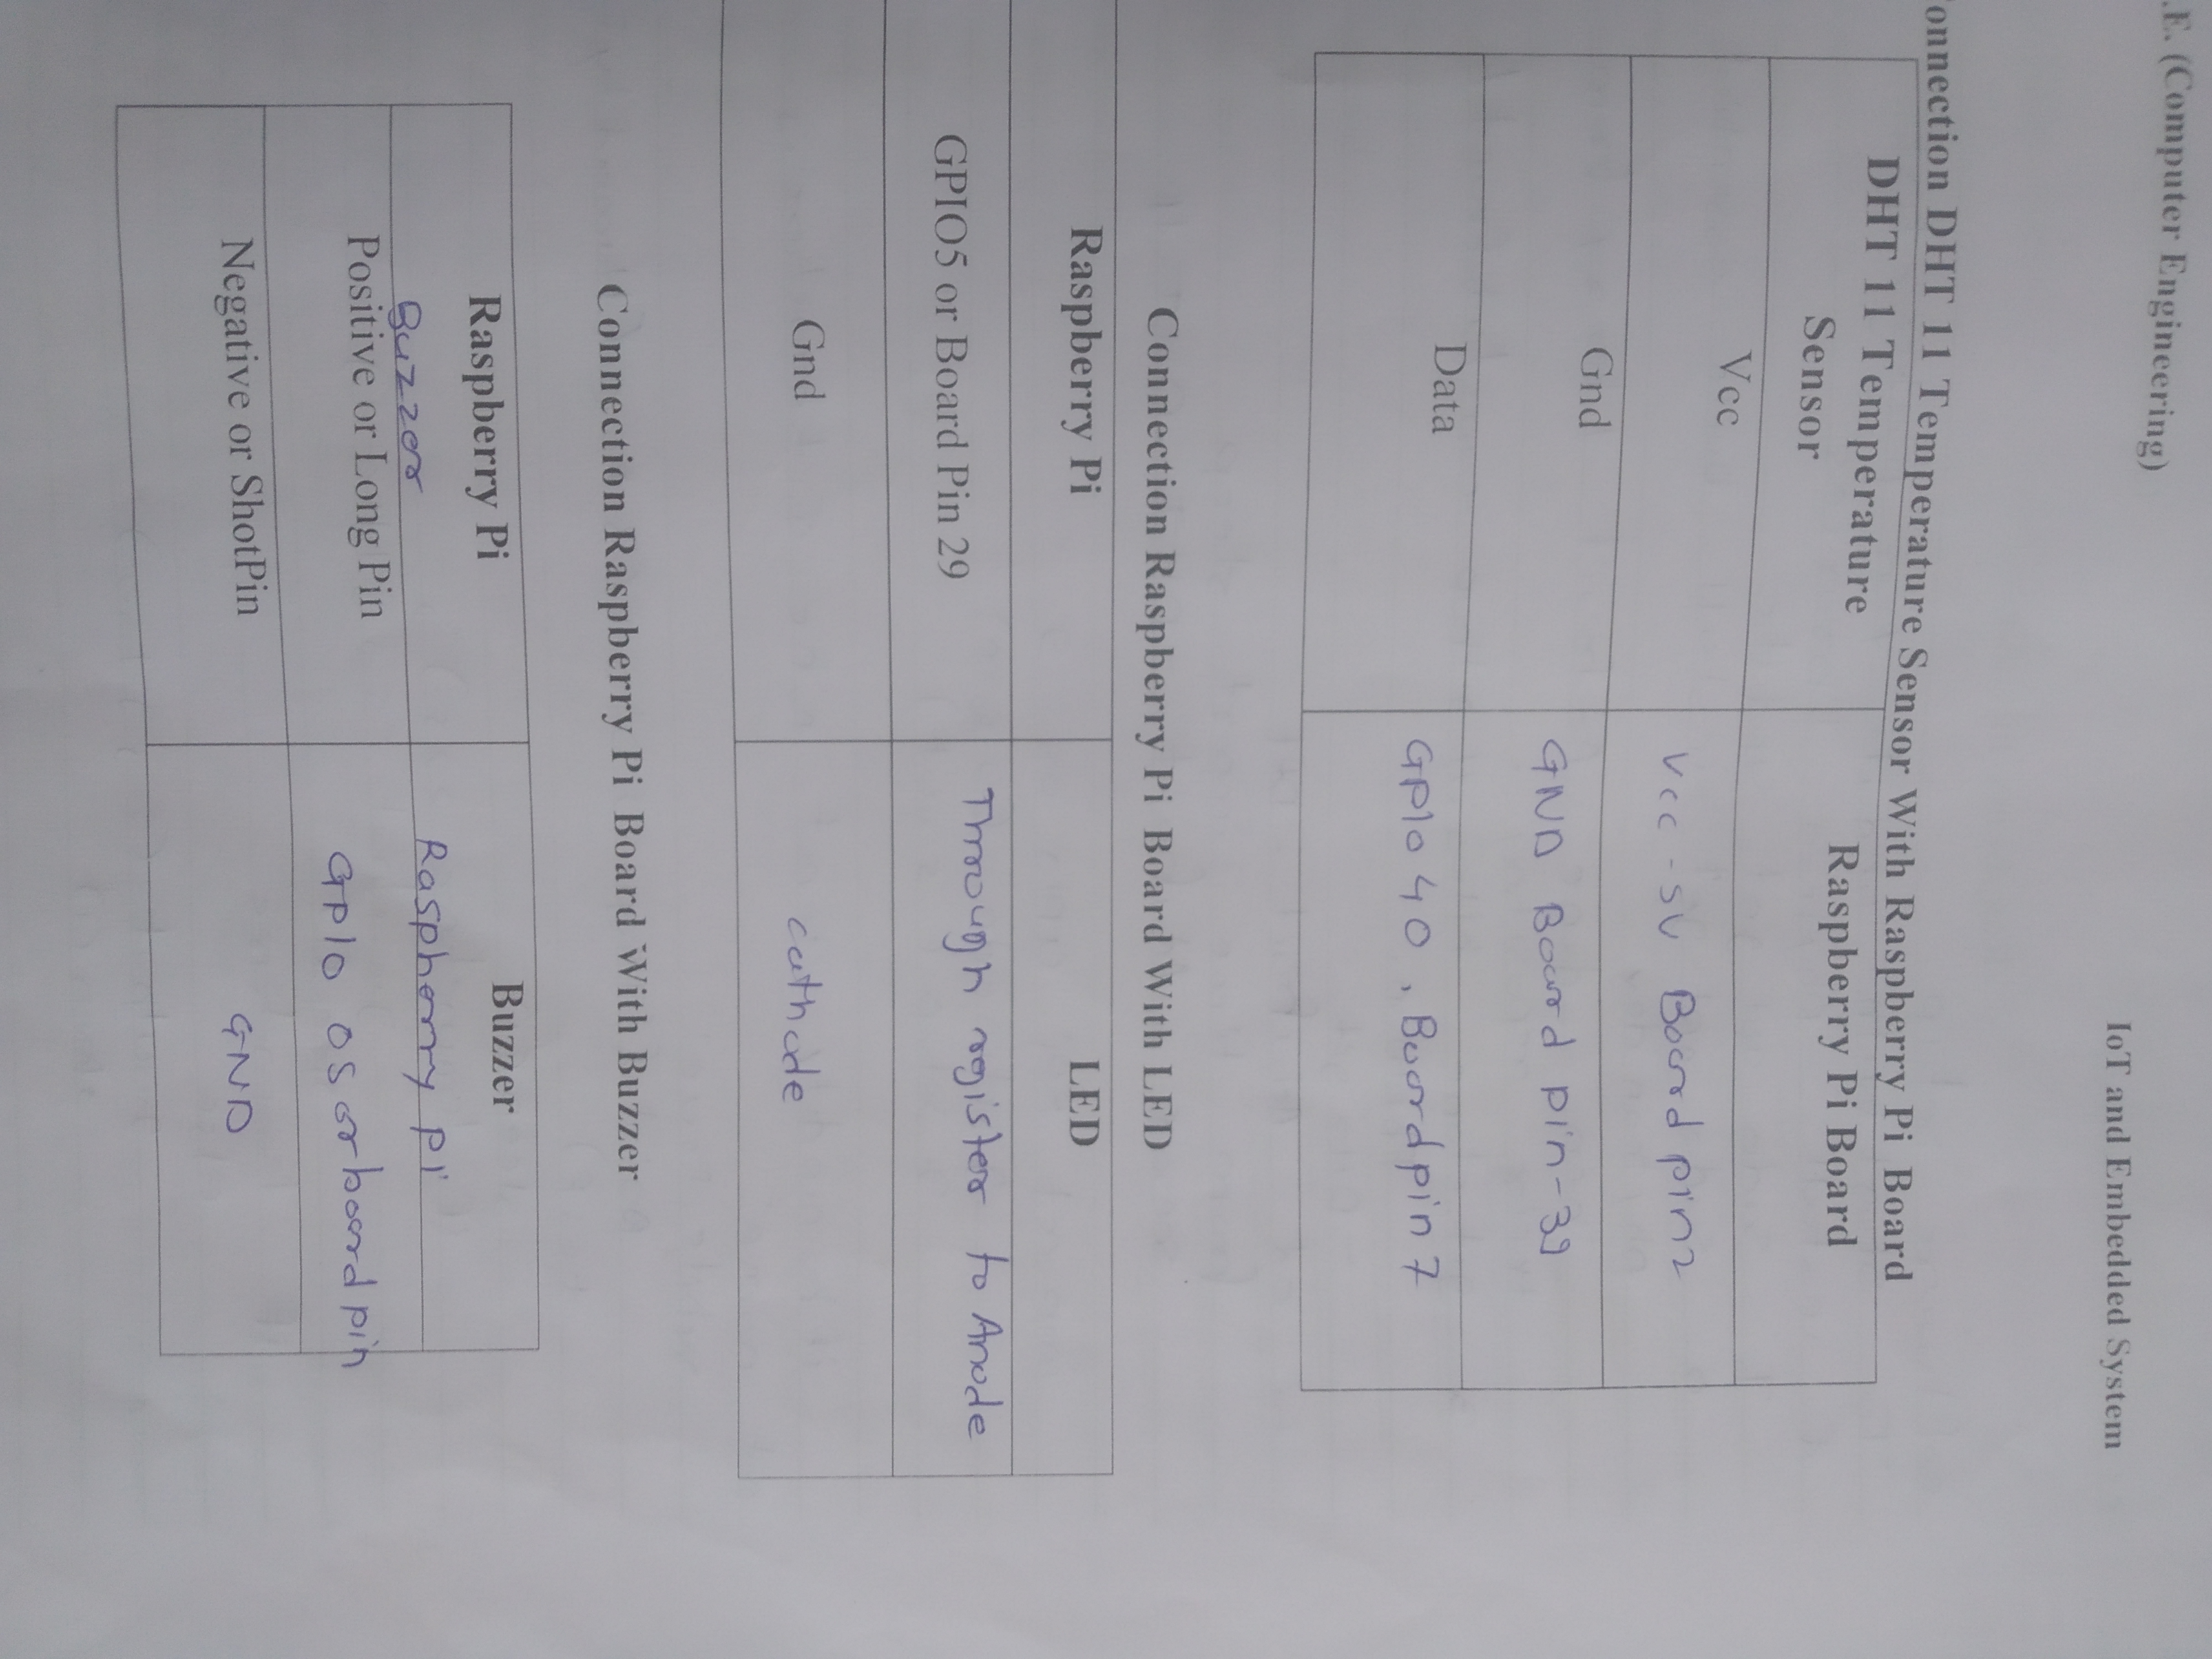 .E. (Computer Engineering) IoT and Embedded System
onnection DHT 11 Temperature Sensor With Raspberry Pi Board
DHT 11 Temperature Sensor Raspberry Pi Board
Vcc Vcc - 5V Board pin2
Gnd GND Board pin-39
Data GPIO 40, Board pin 7
Connection Raspberry Pi Board With LED
Raspberry Pi LED
GPIO5 or Board Pin 29 Through register to Anode
Gnd cathode
Connection Raspberry Pi Board With Buzzer
Raspberry Pi Buzzer
Buzzer Raspberry pi
Positive or Long Pin GPIO 05 or board pin
Negative or ShotPin GND